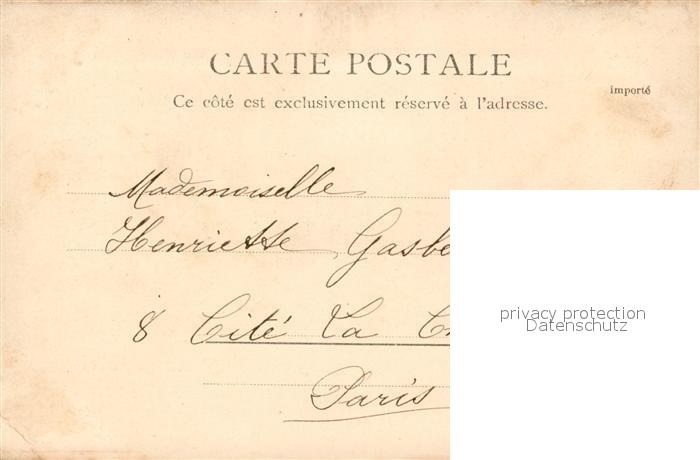 CARTE POSTALE
Ce côté est exclusivement réservé à l'adresse.
importé
Mademoiselle
Henriette
8 Cité La
Paris
privacy protection
Datenschutz